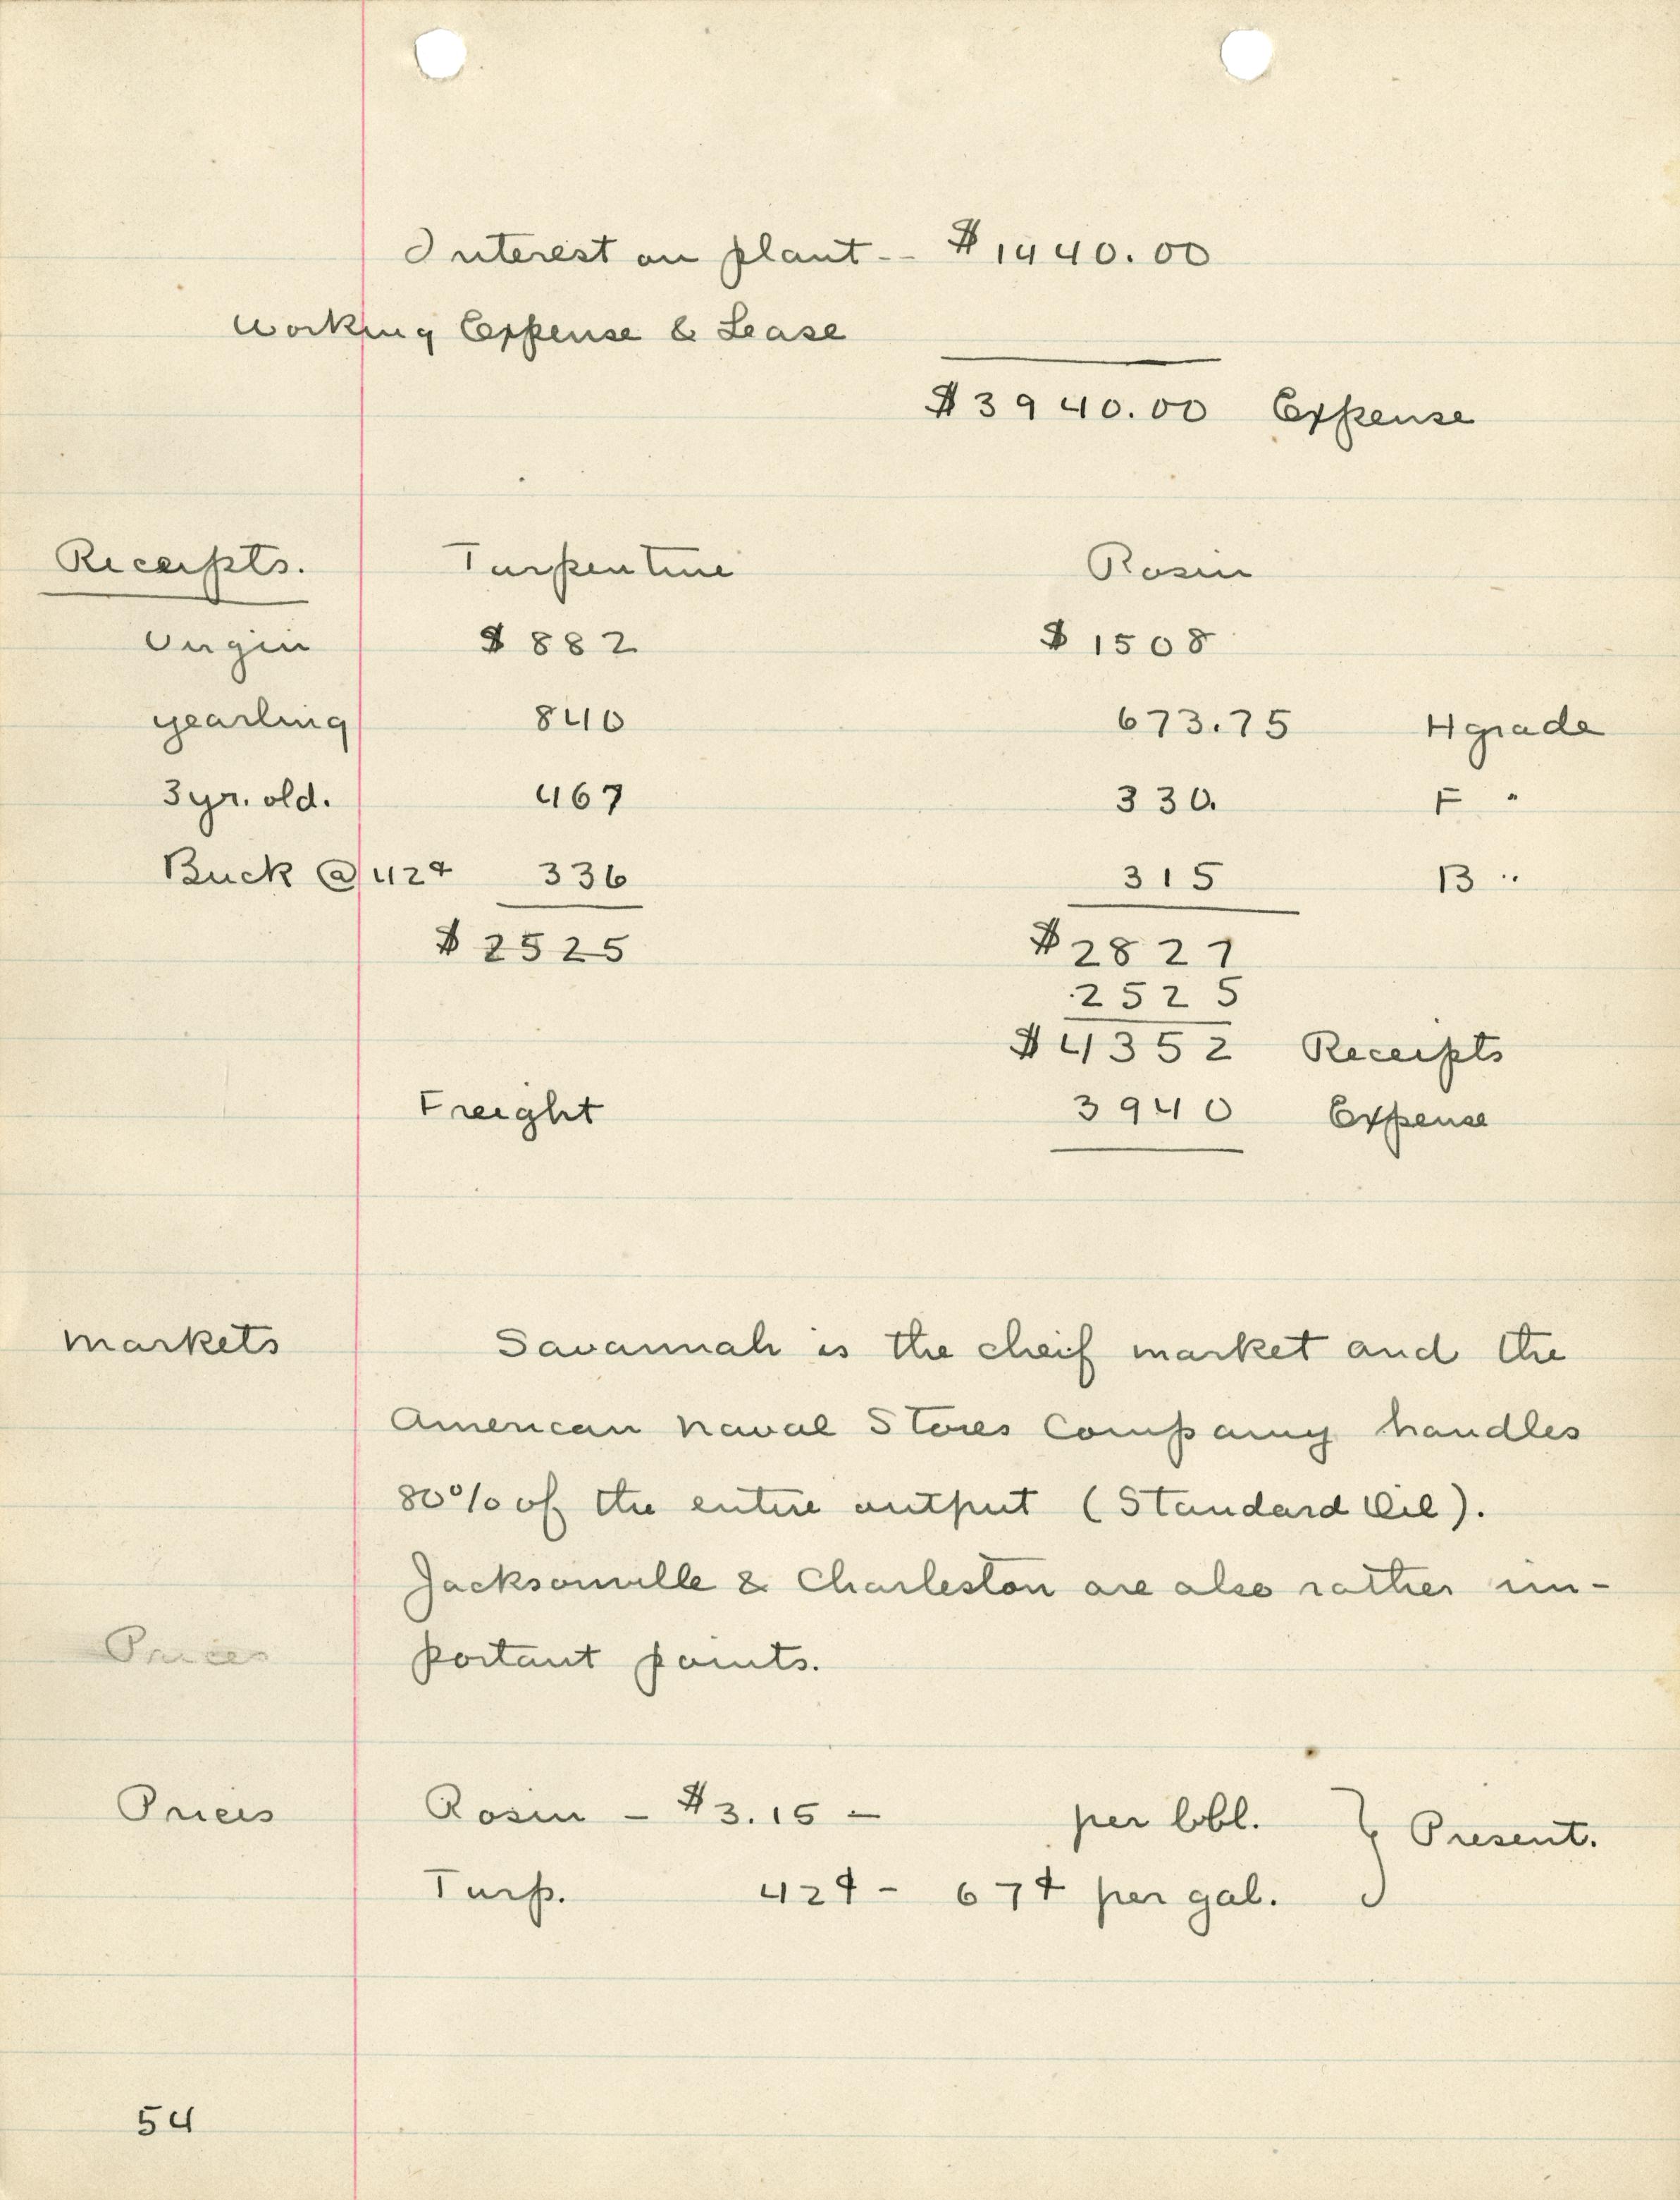 Interest on plant -- $1440.00
Working Expense & Lease
$3940.00 Expense
Receipts. Turpentine Rosin
Virgin $882 $1508
yearling 840 673.75 H grade
3 yr. old. 467 330. F "
Buck @ 42¢ 336 315 B "
$2525 $2827
2525
$4352 Receipts
Freight 3940 Expense
Markets Savannah is the cheif market and the
American Naval Stores Company handles
80% of the entire output (Standard Oil).
Jacksonville & Charleston are also rather im-
Prices portant points.
Prices Rosin - $3.15 - per bbl. } Present.
Turp. 42¢ - 67¢ per gal.
54